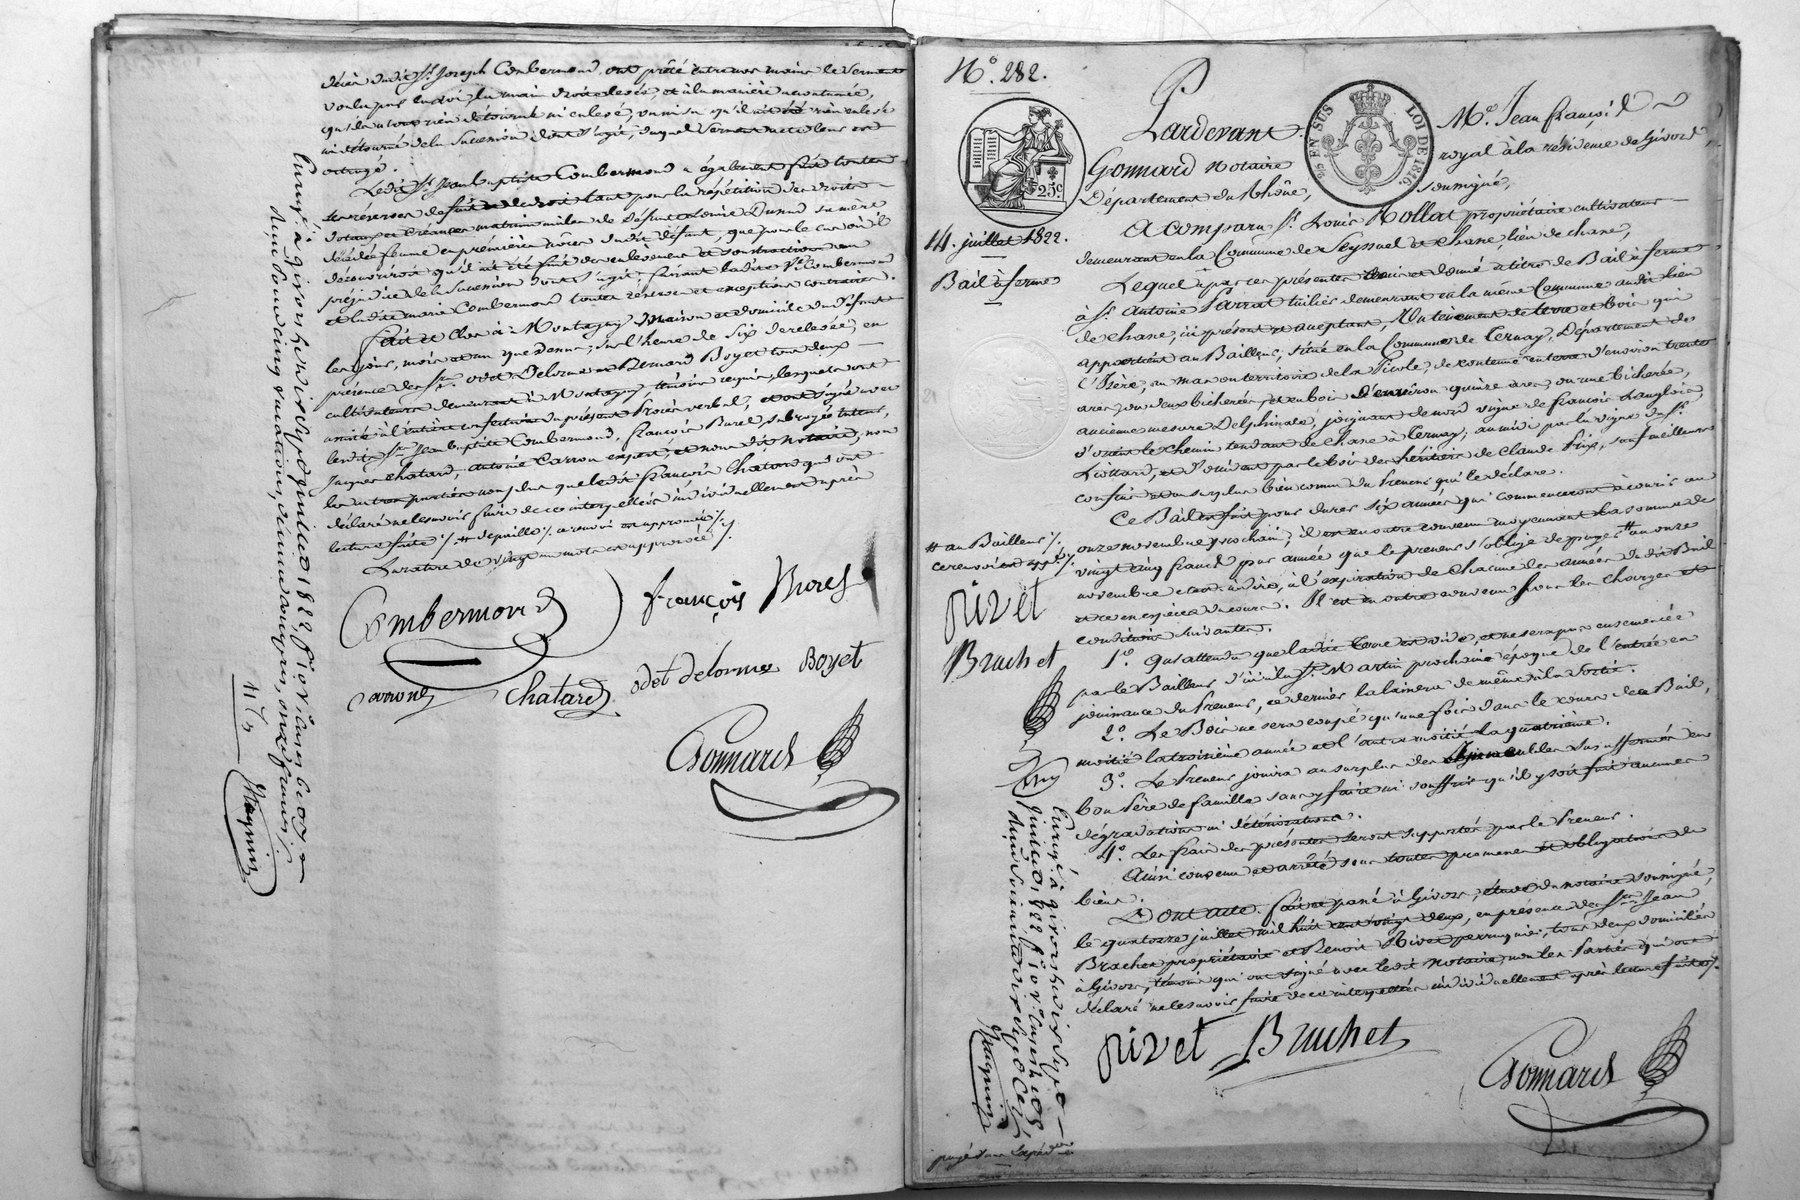 décès dudit Sr. Joseph Combermond, ont prêté entre nos mains le serment
voulu par la loi, la main droite levée, et à la manière accoutumée,
qu'ils n'ont rien détourné ni enlevé, vu ni su qu'il ait été rien enlevé
ni détourné de la succession dont il s'agit, duquel serment acte leur est
octroyé.
Ledit Sr. Jean Baptiste Combermond a également fait toutes
ses réserves de fait et de droit tant pour la répétition des droits
dotaux et créances matrimoniales de défunte Dunod sa mère
décédée femme en premières nôces dudit défunt, que pour le cas où il
découvriroit qu'il ait été fait des enlevemens et soustractions au
préjudice de la succession dont s'agit; faisant ladite Ve. Combermond
et ladite marie Combermond toutes réserves et exceptions contraires.
Fait et clos à Montagny maison et domicile du défunt
les jour, mois et an que dessus, sur l'heure de six de relevée, en
présence des Srs. odet Delorme et Bernard Boyet tous deux
cultivateurs demeurant à Montagny, témoins requis, lesquels ont
assisté à l'entière confection du présent procès verbal, et ont signé avec
lesdits Srs. Jean Baptiste Combermond, François Burel subrogé tuteur,
Jacques Chatard, antoine Carron expert, et nous dit notaire, non
les autres parties non plus que ledit François Chatard qui ont
déclaré ne le savoir faire de ce interpellés individuellement après
lecture faite
La rature de vingt un mots est approuvée
Combermond
françois Burel
carron
Chatard
odet delorme Boyet
Gonnard
Enrgé. à givors huit
juillet 1822
Reçu
vacations,
onze francs
Magnin
N.° 282.
Pardevant
Me. Jean françois
Gonnard Notaire
royal à la résidence de Givors,
Département du Rhône,
soussigné,
25c
25c EN SUS LOI DE 1816.
14. juillet 1822.
Bail à ferme
A comparu Sr. Louis Rollat propriétaire cultivateur
demeurant en la Commune de Seyssuel et chane, lieu de chane,
Lequel a par ces présentes remis et donné à titre de Bail à ferme
à Sr. Antoine Parrat tuilier demeurant en la même Commune audit lieu
de chane, ici présent et acceptant, Un tenement de terre et bois qui
appartient au Bailleur, situé en la Commune de Ternay, Département de
l'Isère, au mas ou territoire de la Picole, de contenue en terre d'environ trente
ares, ou deux bicherées, et en bois d'environ quinze ares ou une bicherée,
ancienne mesure Delphinale, joignant de nord vigne de François Langlois,
d'orient le chemin tendant de chane à Ternay, au midi par la vigne du Sr.
Liottard, et d'occident par le bois des héritiers de Claude Prix, sauf meilleurs
confins et au surplus bien connu du Preneur qui le déclare.
Ce Bail est fait pour durer six années qui commenceront à courir au
onze novembre prochain; il est en outre convenu moyennant la somme de
vingt cinq francs par année que le preneur s'oblige de payer # au onze
novembre c'est-à-dire, à l'expiration de chacune des années du dit Bail
et ce en espèces de cours. Il est en outre convenu sous les charges et
conditions suivantes.
# au Bailleur
ce renvoi est appé.
Rivet
Brachet
1°. Qu'attendu que ladite terre est vide, et ne sera pas ensemencée
par le Bailleur d'ici la St. Martin prochaine époque de l'entrée en
jouissance du Preneur, ce dernier la laissera de même à la sortie.
2°. Le Bois ne sera coupé qu'une fois dans le cours de ce Bail,
moitié la troisième année et l'autre moitié la quatrième.
3°. Le Preneur jouira au surplus des immeubles sus affermés en
bon Père de famille sans y faire ni souffrir qu'il y soit fait aucunes
dégradations ni détériorations.
4°. Les frais des présentes seront supportés par le Preneur.
Ainsi convenu et arrêté sous toutes promesses et obligations de
biens.
Dont acte. fait et passé à Givors, étude du notaire soussigné,
le quatorze juillet mil huit cent vingt deux, en présence des Srs. Jean
Brachet propriétaire et Benoit Rivet perruquier, tous deux domiciliés
à Givors, témoins qui ont signé avec ledit Notaire, non les Parties qui ont
déclaré ne le savoir faire de ce interpellées individuellement après lecture faite.
Rivet Brachet
Gonnard
Enrgé. à givors
juillet 1822
Magnin